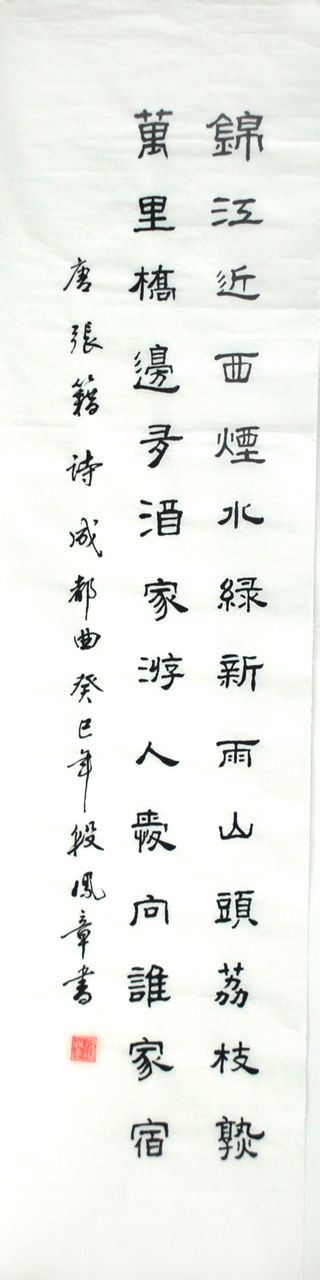 錦江近西煙水綠新雨山頭荔枝熟
萬里橋邊多酒家游人愛向誰家宿
唐張籍詩成都曲癸巳年段鳳章書